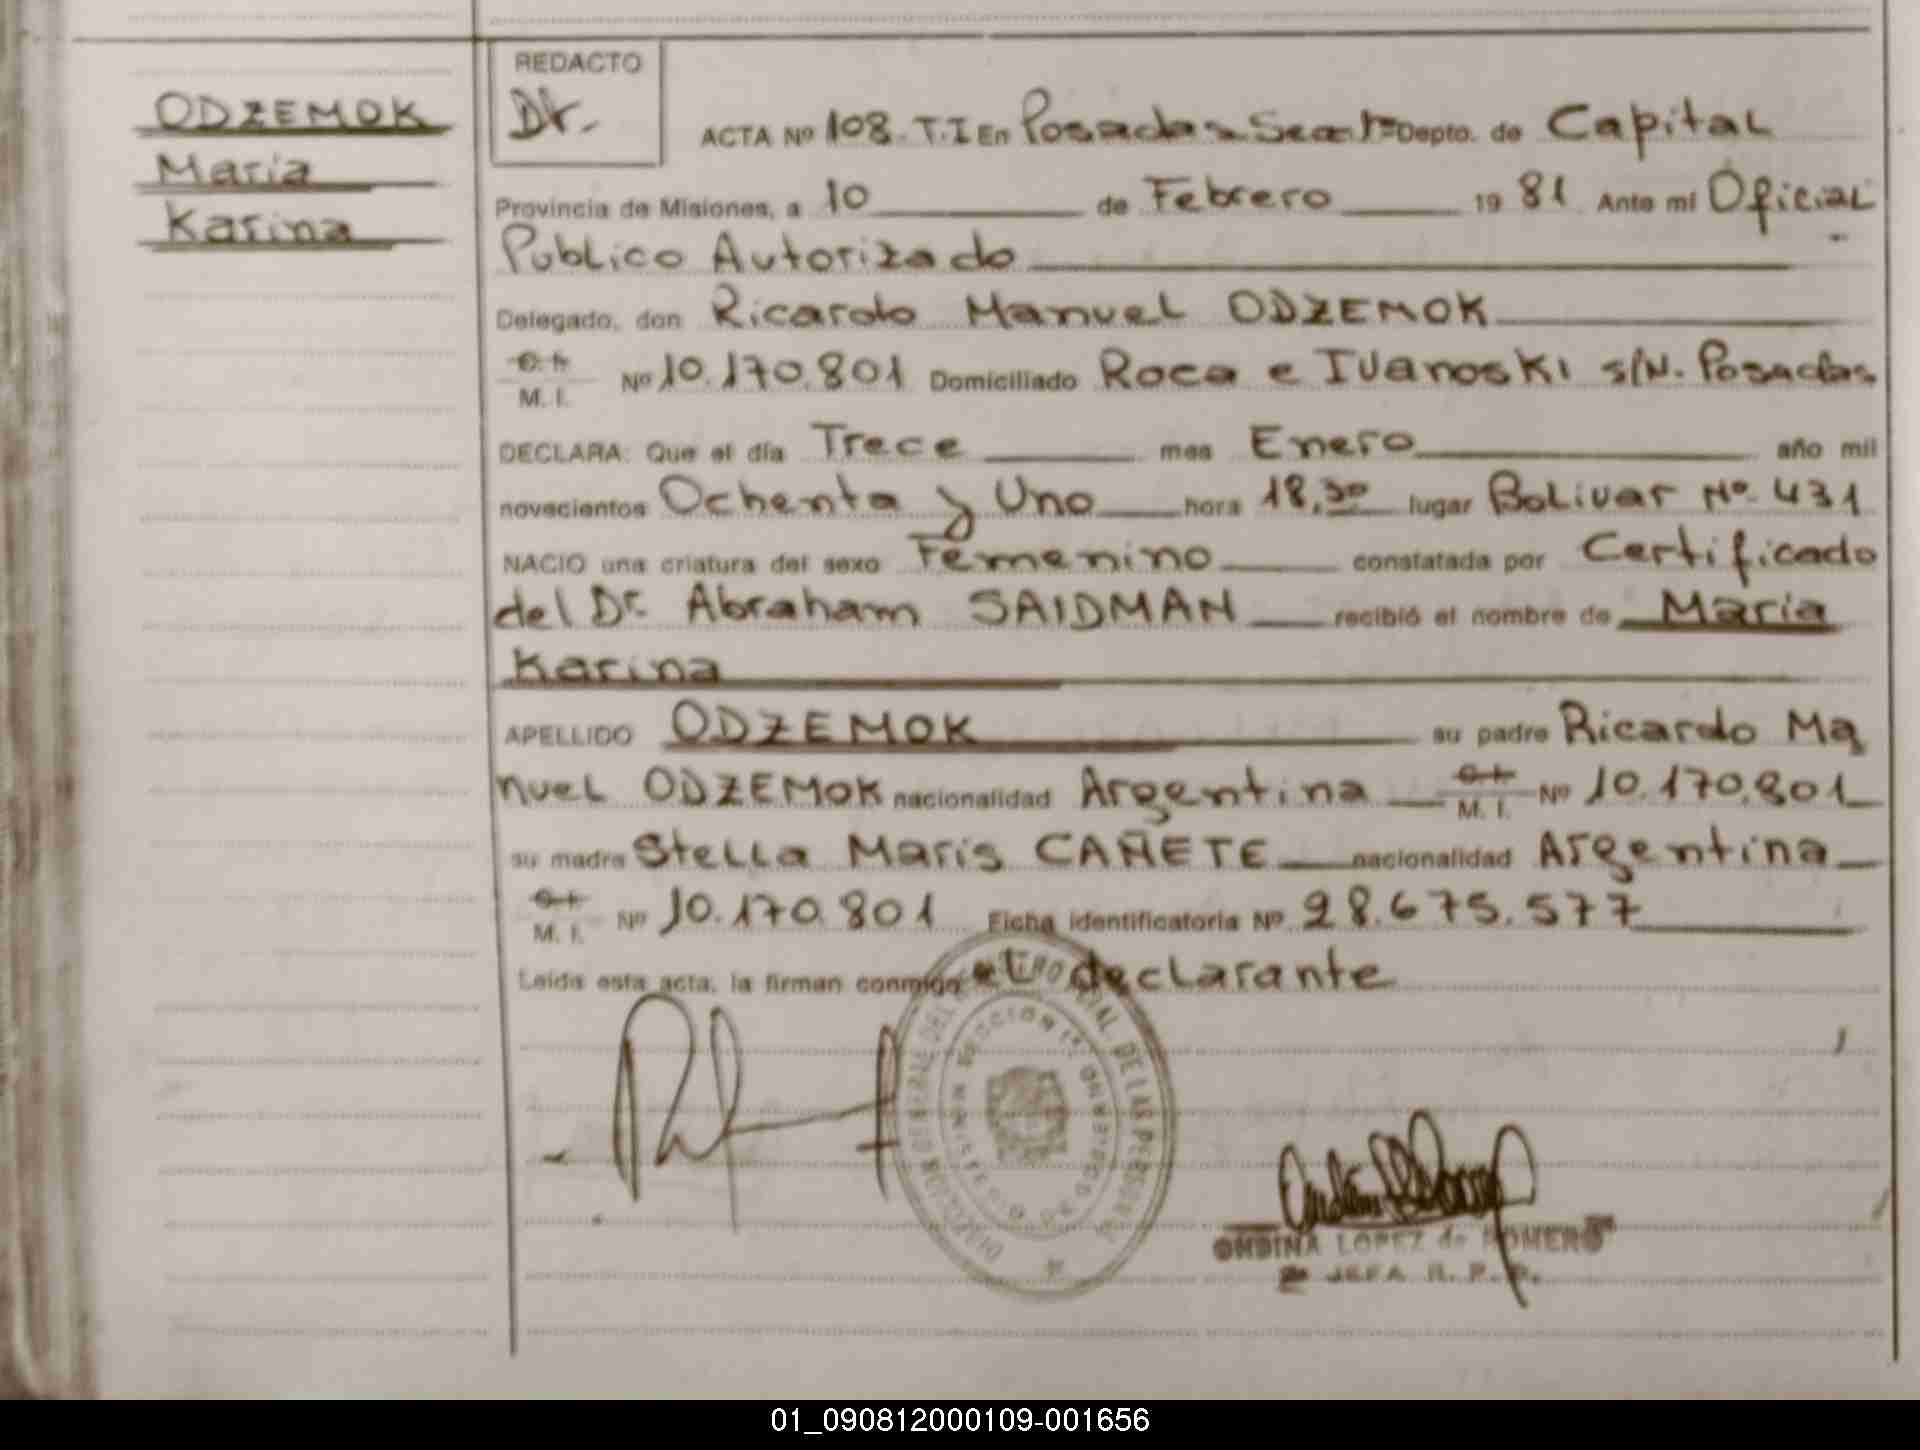 ODZEMOK
Maria
Karina
REDACTO
Dr.
ACTA Nº 108. T.I En Posadas Sec. 1ª Depto. de Capital
Provincia de Misiones, a 10 de Febrero 19 81 Ante mí Oficial
Publico Autorizado
Delegado, don Ricardo Manuel ODZEMOK
M. I. Nº 10.170.801 Domiciliado Roca e Ivanoski s/N. Posadas
DECLARA: Que el día Trece mes Enero año mil
novecientos Ochenta y Uno hora 18,30 lugar Bolivar Nº 431
NACIO una criatura del sexo Femenino constatada por Certificado
del Dr. Abraham SAIDMAN recibió el nombre de Maria
Karina
APELLIDO ODZEMOK su padre Ricardo Ma
nuel ODZEMOK nacionalidad Argentina M. I. Nº 10.170.801
su madre Stella Maris CAÑETE nacionalidad Argentina
M. I. Nº 10.170.801 Ficha identificatoria Nº 28.675.577
Leída esta acta, la firman conmigo el declarante
DIRECCION GENERAL DEL REGISTRO DE LAS PERSONAS
MINISTERIO DE GOBIERNO
SECCION 1ª
ONDINA LOPEZ de ROMERO
JEFA R. P. P.
01_090812000109-001656